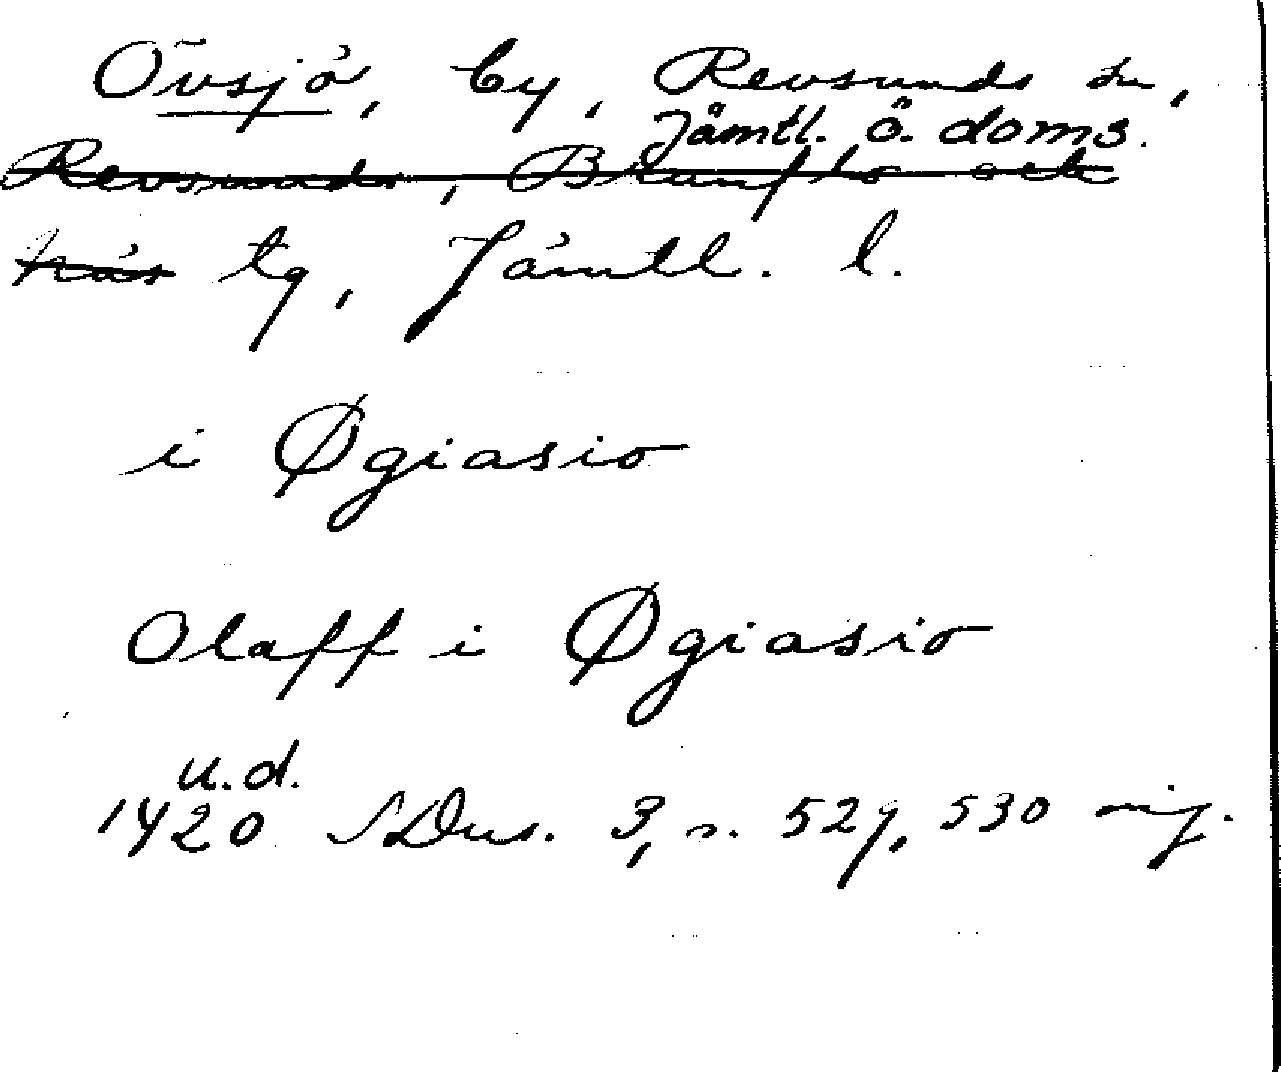 Övsjö, by, Revsunds sn,
Jämtl. ö. doms.
Revsunds, Brunflo och
Näs tg, Jämtl. l.
i Øgiasio
Olaff i Øgiasio
u.d.
1420 SDns. 3, s. 529, 530